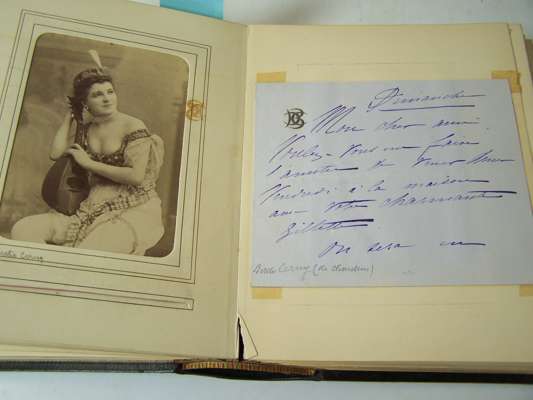 Cerny
Dimanche
Mon cher ami
Voulez-vous me faire
l'amitié de venir dîner
Vendredi à la maison
avec votre charmante
Gillette
On sera un
Berthe Cerny (de Choudens)